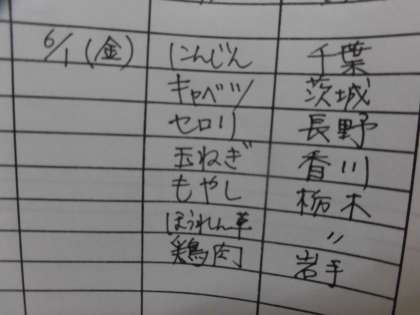 6/1(金) にんじん 千葉
キャベツ 茨城
セロリ 長野
玉ねぎ 香川
もやし 栃木
ほうれん草 〃
鶏肉 岩手